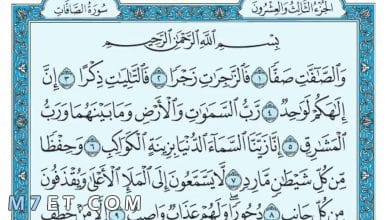 الجزء الثالث والعشرون سورة الصافات
بسم الله الرحمن الرحيم
والصّٰٓفّٰت صفّا ١ فالزّٰجرٰت زجرا ٢ فالتّٰليٰت ذكرا ٣ إنّ
إلٰهكم لوٰحد ٤ ربّ السّمٰوٰت والأرض وما بينهما وربّ
المشٰرق ٥ إنّا زيّنّا السّمآء الدّنيا بزينة الكواكب ٦ وحفظا
مّن كلّ شيطٰن مّارد ٧ لّا يسّمّعون إلى الملإ الأعلىٰ ويقذفون
من كلّ جانب ٨ دحورا ولهم عذاب واصب ٩ إلّا من خطف
M7ET.COM